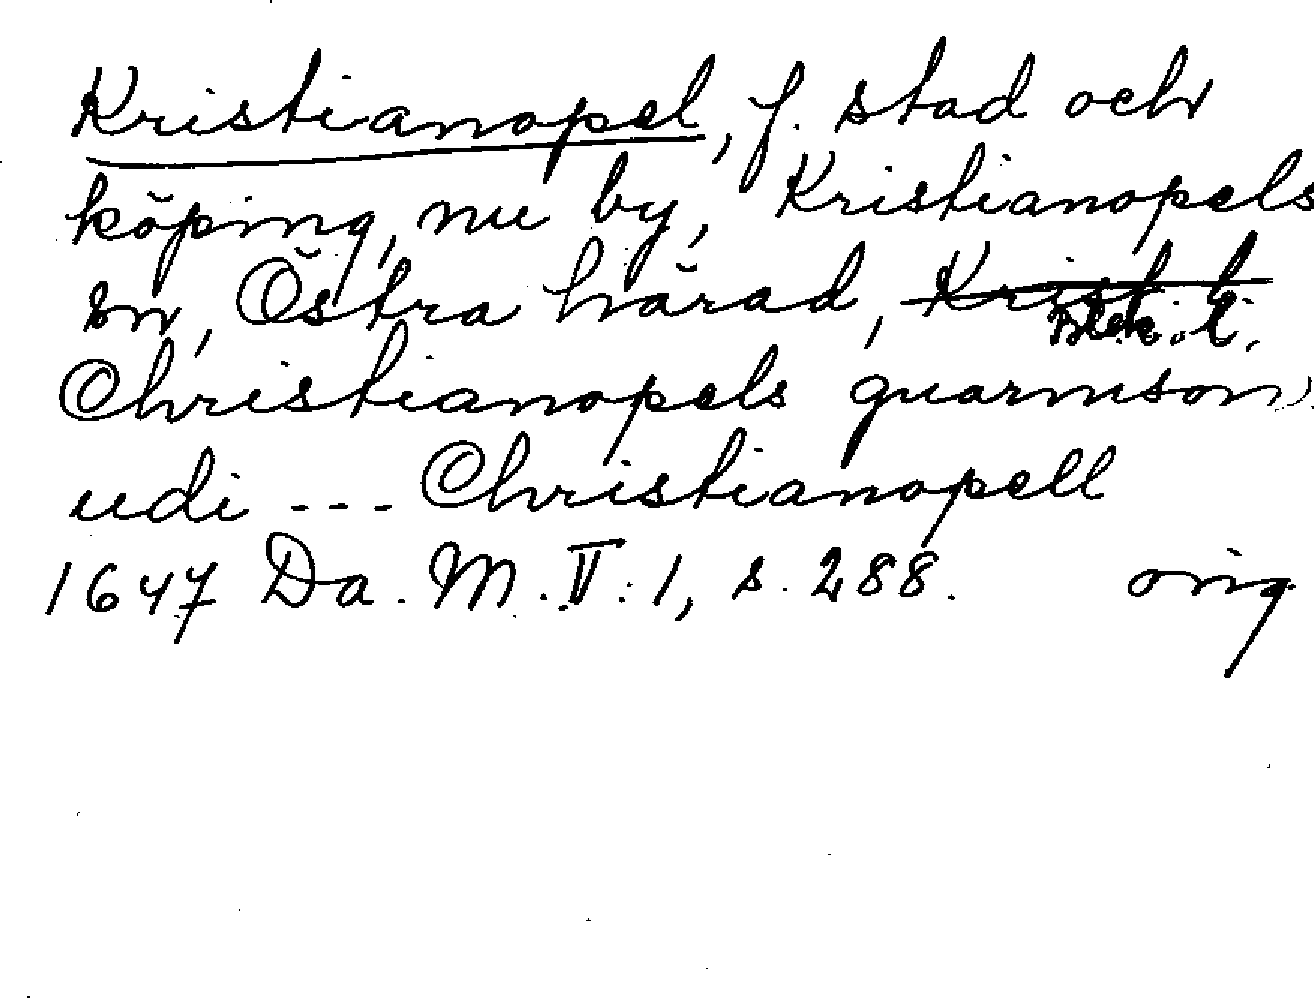 Kristianopel, f. stad och
köping, nu by, Kristianopels
sn, Östra härad, Krist. l.
Blek. l.
Christianopels guarnison
udi --- Christianopell
1647 Da. M. V: 1, s. 288. orig